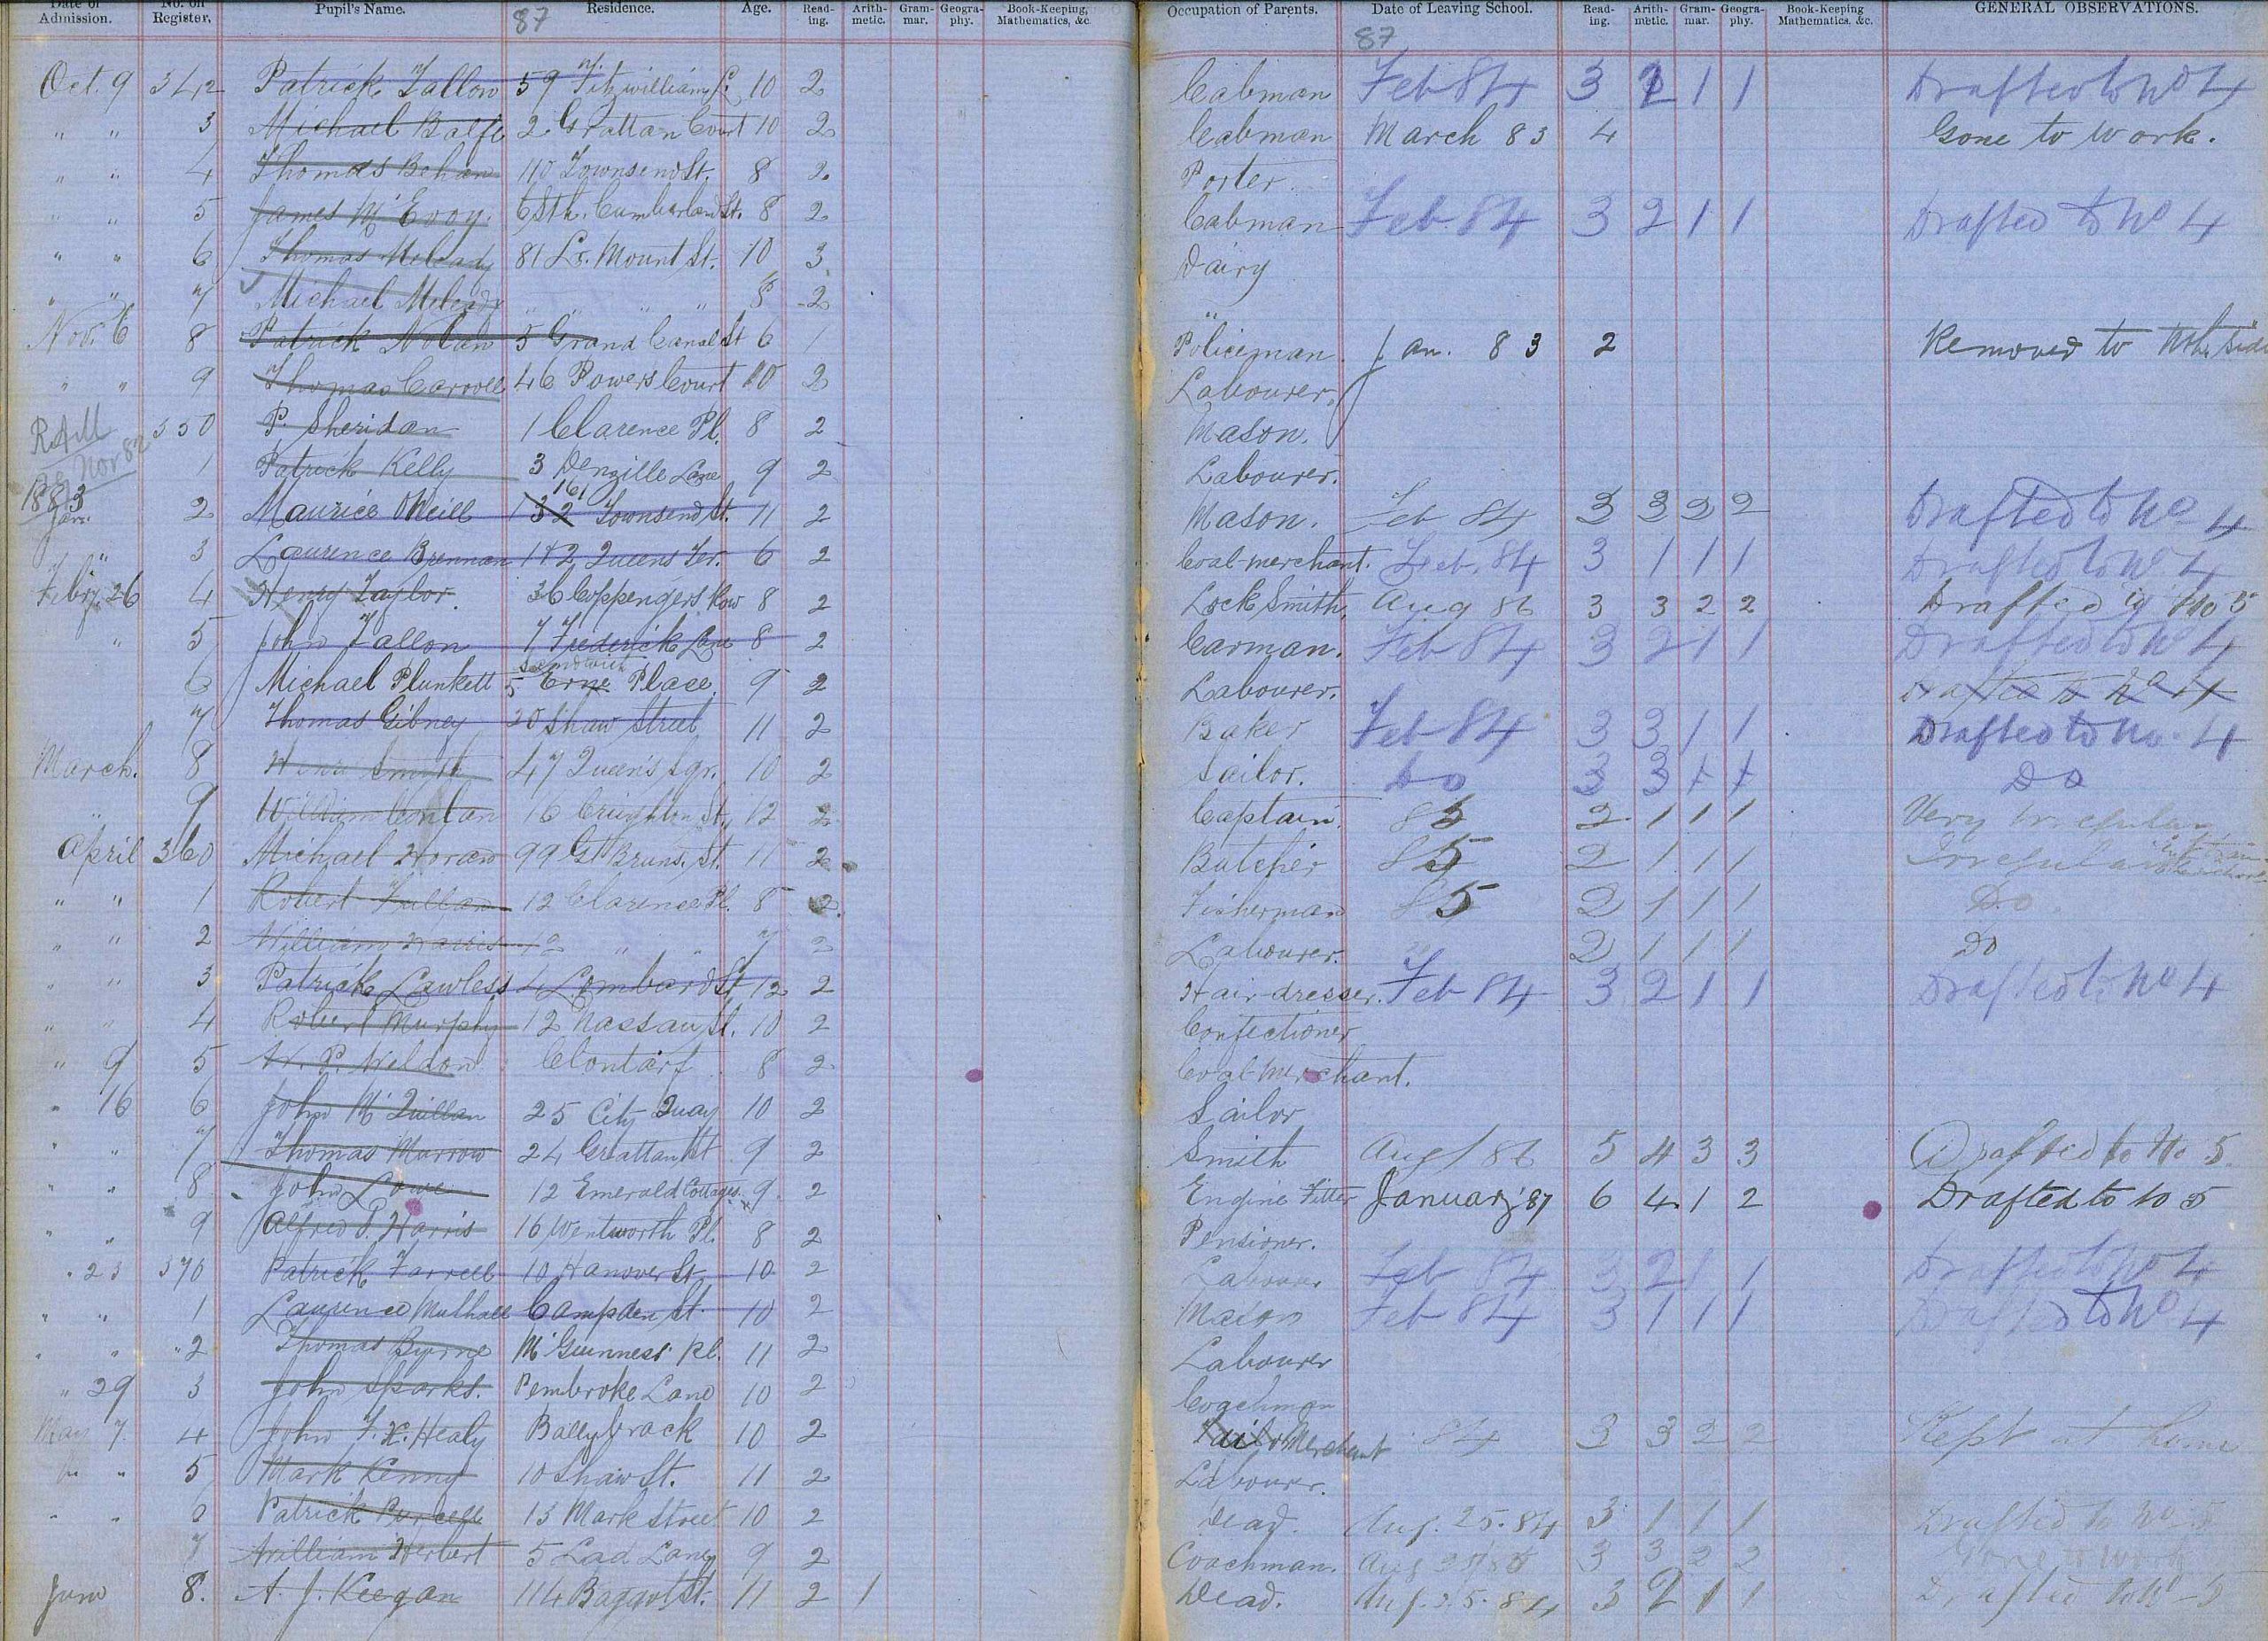 Date of Admission. No. on Register. Pupil's Name. Residence. Age. Reading. Arithmetic. Grammar. Geography. Book-Keeping, Mathematics, &c. Occupation of Parents. Date of Leaving School. Reading. Arithmetic. Grammar. Geography. Book-Keeping Mathematics, &c. GENERAL OBSERVATIONS.
87 87
Oct. 9 342 Patrick Fallon 59 Fitzwilliam L. 10 2 Cabman Feb 84 3 2 1 1 Drafted to No 4
" " 3 Michael Balfe 2 Grattan Court 10 2 Cabman March 83 4 Gone to work.
" " 4 Thomas Behan 110 Townsend St. 8 2 Porter.
" " 5 James McEvoy. 6 Sth. Cumberland St. 8 2 Cabman Feb. 84 3 2 1 1 Drafted to No 4
" " 6 Thomas Meleady 81 Lr. Mount St. 10 3 Dairy
" " 7 Michael Meleady " " " 8 2 "
Nov. 6 8 Patrick Nolan 5 Grand Canal St 6 1 Policeman Jan. 83 2 Removed to other side
" " 9 Thomas Carroll 46 Powers Court 10 2 Labourer.
350 P. Sheridan 1 Clarence Pl. 8 2 Mason.
Nov 82 1 Patrick Kelly 3 Denzille Lane 9 2 Labourer.
1883 Jan. 2 Maurice O'Neill 161 132 Townsend St. 11 2 Mason. Feb 84 3 3 2 2 Drafted to No 4
" " 3 Laurence Brennan 182 Queens Ter. 6 2 Coal-merchant. Feb. 84 3 1 1 1 Drafted to No 4
Feby. 26 4 Henry Taylor. 36 Coppengers Row 8 2 Lock Smith. Aug 86 3 3 2 2 Drafted to No 5
" 5 John Fallon 7 Frederick Lane 8 2 Carman. Feb 84 3 2 1 1 Drafted to No 4
6 Michael Plunkett 5 Sandwich Erne Place. 9 2 Labourer. Drafted to No 4
7 Thomas Gibney 20 Shaw Street 11 2 Baker Feb 84 3 3 1 1 Drafted to No. 4
March. 8 Smyth 47 Queen's Sqr. 10 2 Sailor. Do 3 3 1 1 Do
" 9 William Conlan 16 Creighton St. 12 2 Captain. 85 2 1 1 1 Very Irregular
April 360 Michael Horan 99 Gt. Bruns. St. 11 2 Butcher 85 2 1 1 1 Irregular
" " 1 Robert Fullam 12 Clarence Pl. 8 2 Fisherman 85 2 1 1 1 Do.
" " 2 William Harris 12 " " 7 2 Labourer. 2 1 1 1 Do
" " 3 Patrick Lawless 4 Lombard St 12 2 Hair-dresser. Feb 84 3 2 1 1 Drafted to No 4
" " 4 Robert Murphy 12 Nassau St. 10 2 Confectioner
" 9 5 W. P. Weldon Clontarf 8 2 Coal-Merchant.
" 16 6 John McQuillan 25 City Quay 10 2 Sailor
" " 7 Thomas Murrow 24 Grattan St 9 2 Smith Aug/86 5 4 3 3 Drafted to No 5
" " 8 John Lowe 12 Emerald Cottages. 9 2 Engine Fitter January 87 6 4 1 2 Drafted to to 5
" " 9 Alfred J. Harris 16 Wentworth Pl. 8 2 Pensioner.
" 23 370 Patrick Farrell 10 Hanover St. 10 2 Labourer Feb 84 3 2 1 1 Drafted to No 4
" " 1 Laurence Mulhall Campden St. 10 2 Mason Feb 84 3 1 1 1 Drafted to No 4
" " 2 Thomas Byrne McGuinness Pl. 11 2 Labourer
" 29 3 John Sparks. Pembroke Lane 10 2 Coachman
May 7 4 John F. X. Healy Ballybrack 10 2 Merchant 84 3 3 2 2 Kept at home
" " 5 Mark Kenny 10 Shaw St. 11 2 Labourer.
" " 6 Patrick Purcell 13 Mark Street 10 2 Dead. Aug. 25. 84 3 1 1 1 Drafted to No 5
7 William Herbert 5 Lad Lane 9 2 Coachman. Aug 3 3 2 2 Gone to work
June 8. A. J. Keegan 114 Baggot St. 11 2 1 Dead. Aug. 25. 84 3 2 1 1 Drafted to No 5